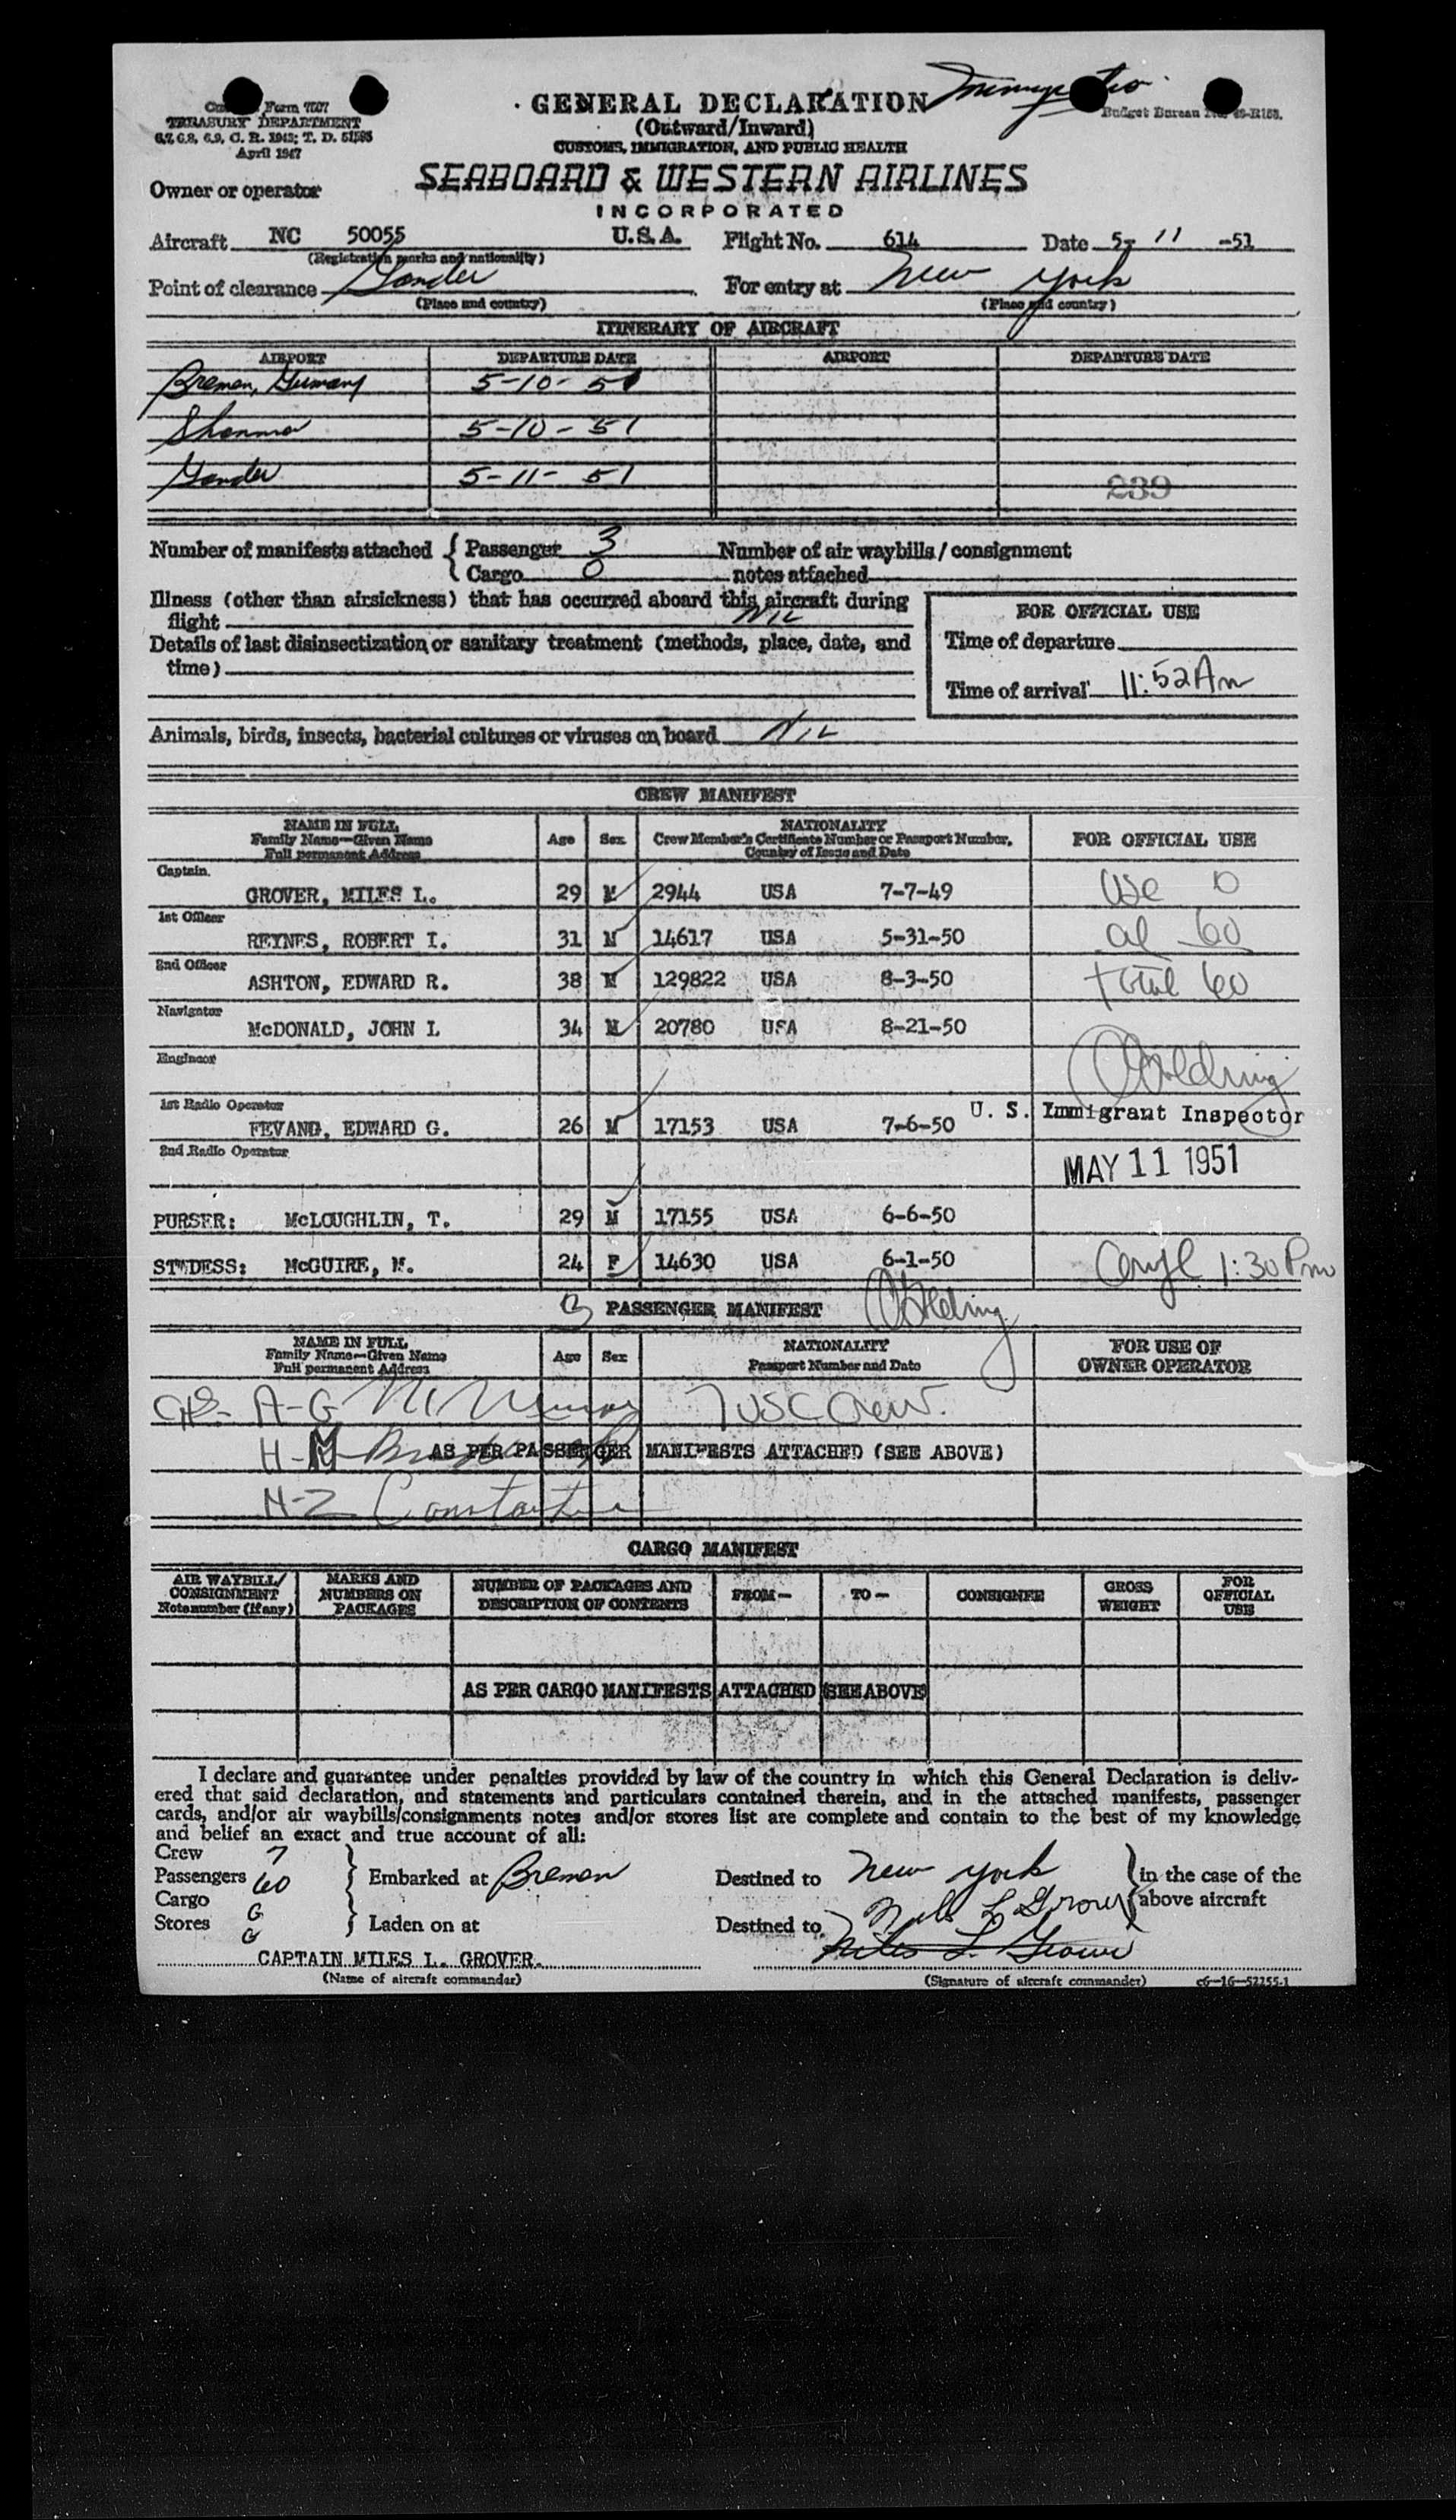 GENERAL DECLARATION
(Outward/Inward)
CUSTOMS, IMMIGRATION, AND PUBLIC HEALTH
Form 7507
TREASURY DEPARTMENT
6.7, 6.8, 6.9, C. R. 1943; T. D. 51595
April 1947
Budget Bureau No. 48-R155.
Owner or operator
SEABOARD & WESTERN AIRLINES
INCORPORATED
Aircraft NC 50055 U.S.A. Flight No. 614 Date 5- 11 -51
(Registration marks and nationality)
Point of clearance Gander For entry at New York
(Place and country) (Place and country)
ITINERARY OF AIRCRAFT
AIRPORT DEPARTURE DATE AIRPORT DEPARTURE DATE
Bremen, Germany 5-10-51
Shannon 5-10-51
Gander 5-11-51
239
Number of manifests attached { Passenger 3 Number of air waybills / consignment
Cargo 0 notes attached
Illness (other than airsickness) that has occurred aboard this aircraft during
flight NIL
Details of last disinsectization or sanitary treatment (methods, place, date, and
time)
FOR OFFICIAL USE
Time of departure
Time of arrival 11:52 Am
Animals, birds, insects, bacterial cultures or viruses on board NIL
CREW MANIFEST
NAME IN FULL Age Sex NATIONALITY FOR OFFICIAL USE
Family Name—Given Name Crew Member's Certificate Number or Passport Number,
Full permanent Address Country of Issue and Date
Captain
GROVER, MILES L. 29 M 2944 USA 7-7-49 USC 0
1st Officer
REYNES, ROBERT I. 31 M 14617 USA 5-31-50 al 60
2nd Officer
ASHTON, EDWARD R. 38 M 129822 USA 8-3-50 total 60
Navigator
McDONALD, JOHN I 34 M 20780 USA 8-21-50
Engineer
1st Radio Operator
FEVANG, EDWARD G. 26 M 17153 USA 7-6-50
U. S. Immigrant Inspector
2nd Radio Operator
MAY 11 1951
PURSER: McLOUGHLIN, T. 29 M 17155 USA 6-6-50
STWDESS: McGUIRE, M. 24 F 14630 USA 6-1-50 1:30 Pm
PASSENGER MANIFEST
NAME IN FULL Age Sex NATIONALITY FOR USE OF
Family Name—Given Name Passport Number and Date OWNER OPERATOR
Full permanent Address
A-G 7 USC Crew.
H-M AS PER PASSENGER MANIFESTS ATTACHED (SEE ABOVE)
N-Z
CARGO MANIFEST
AIR WAYBILL/ CONSIGNMENT Note number (if any) MARKS AND NUMBERS ON PACKAGES NUMBER OF PACKAGES AND DESCRIPTION OF CONTENTS FROM— TO— CONSIGNEE GROSS WEIGHT FOR OFFICIAL USE
AS PER CARGO MANIFESTS ATTACHED (SEE ABOVE)
I declare and guarantee under penalties provided by law of the country in which this General Declaration is deliv-
ered that said declaration, and statements and particulars contained therein, and in the attached manifests, passenger
cards, and/or air waybills/consignments notes and/or stores list are complete and contain to the best of my knowledge
and belief an exact and true account of all:
Crew 7
Passengers 60 Embarked at Bremen Destined to New York in the case of the
Cargo above aircraft
Stores Laden on at Destined to Miles L Grover
CAPTAIN MILES L. GROVER. Miles L. Grover
(Name of aircraft commander) (Signature of aircraft commander) c6—16—52255-1